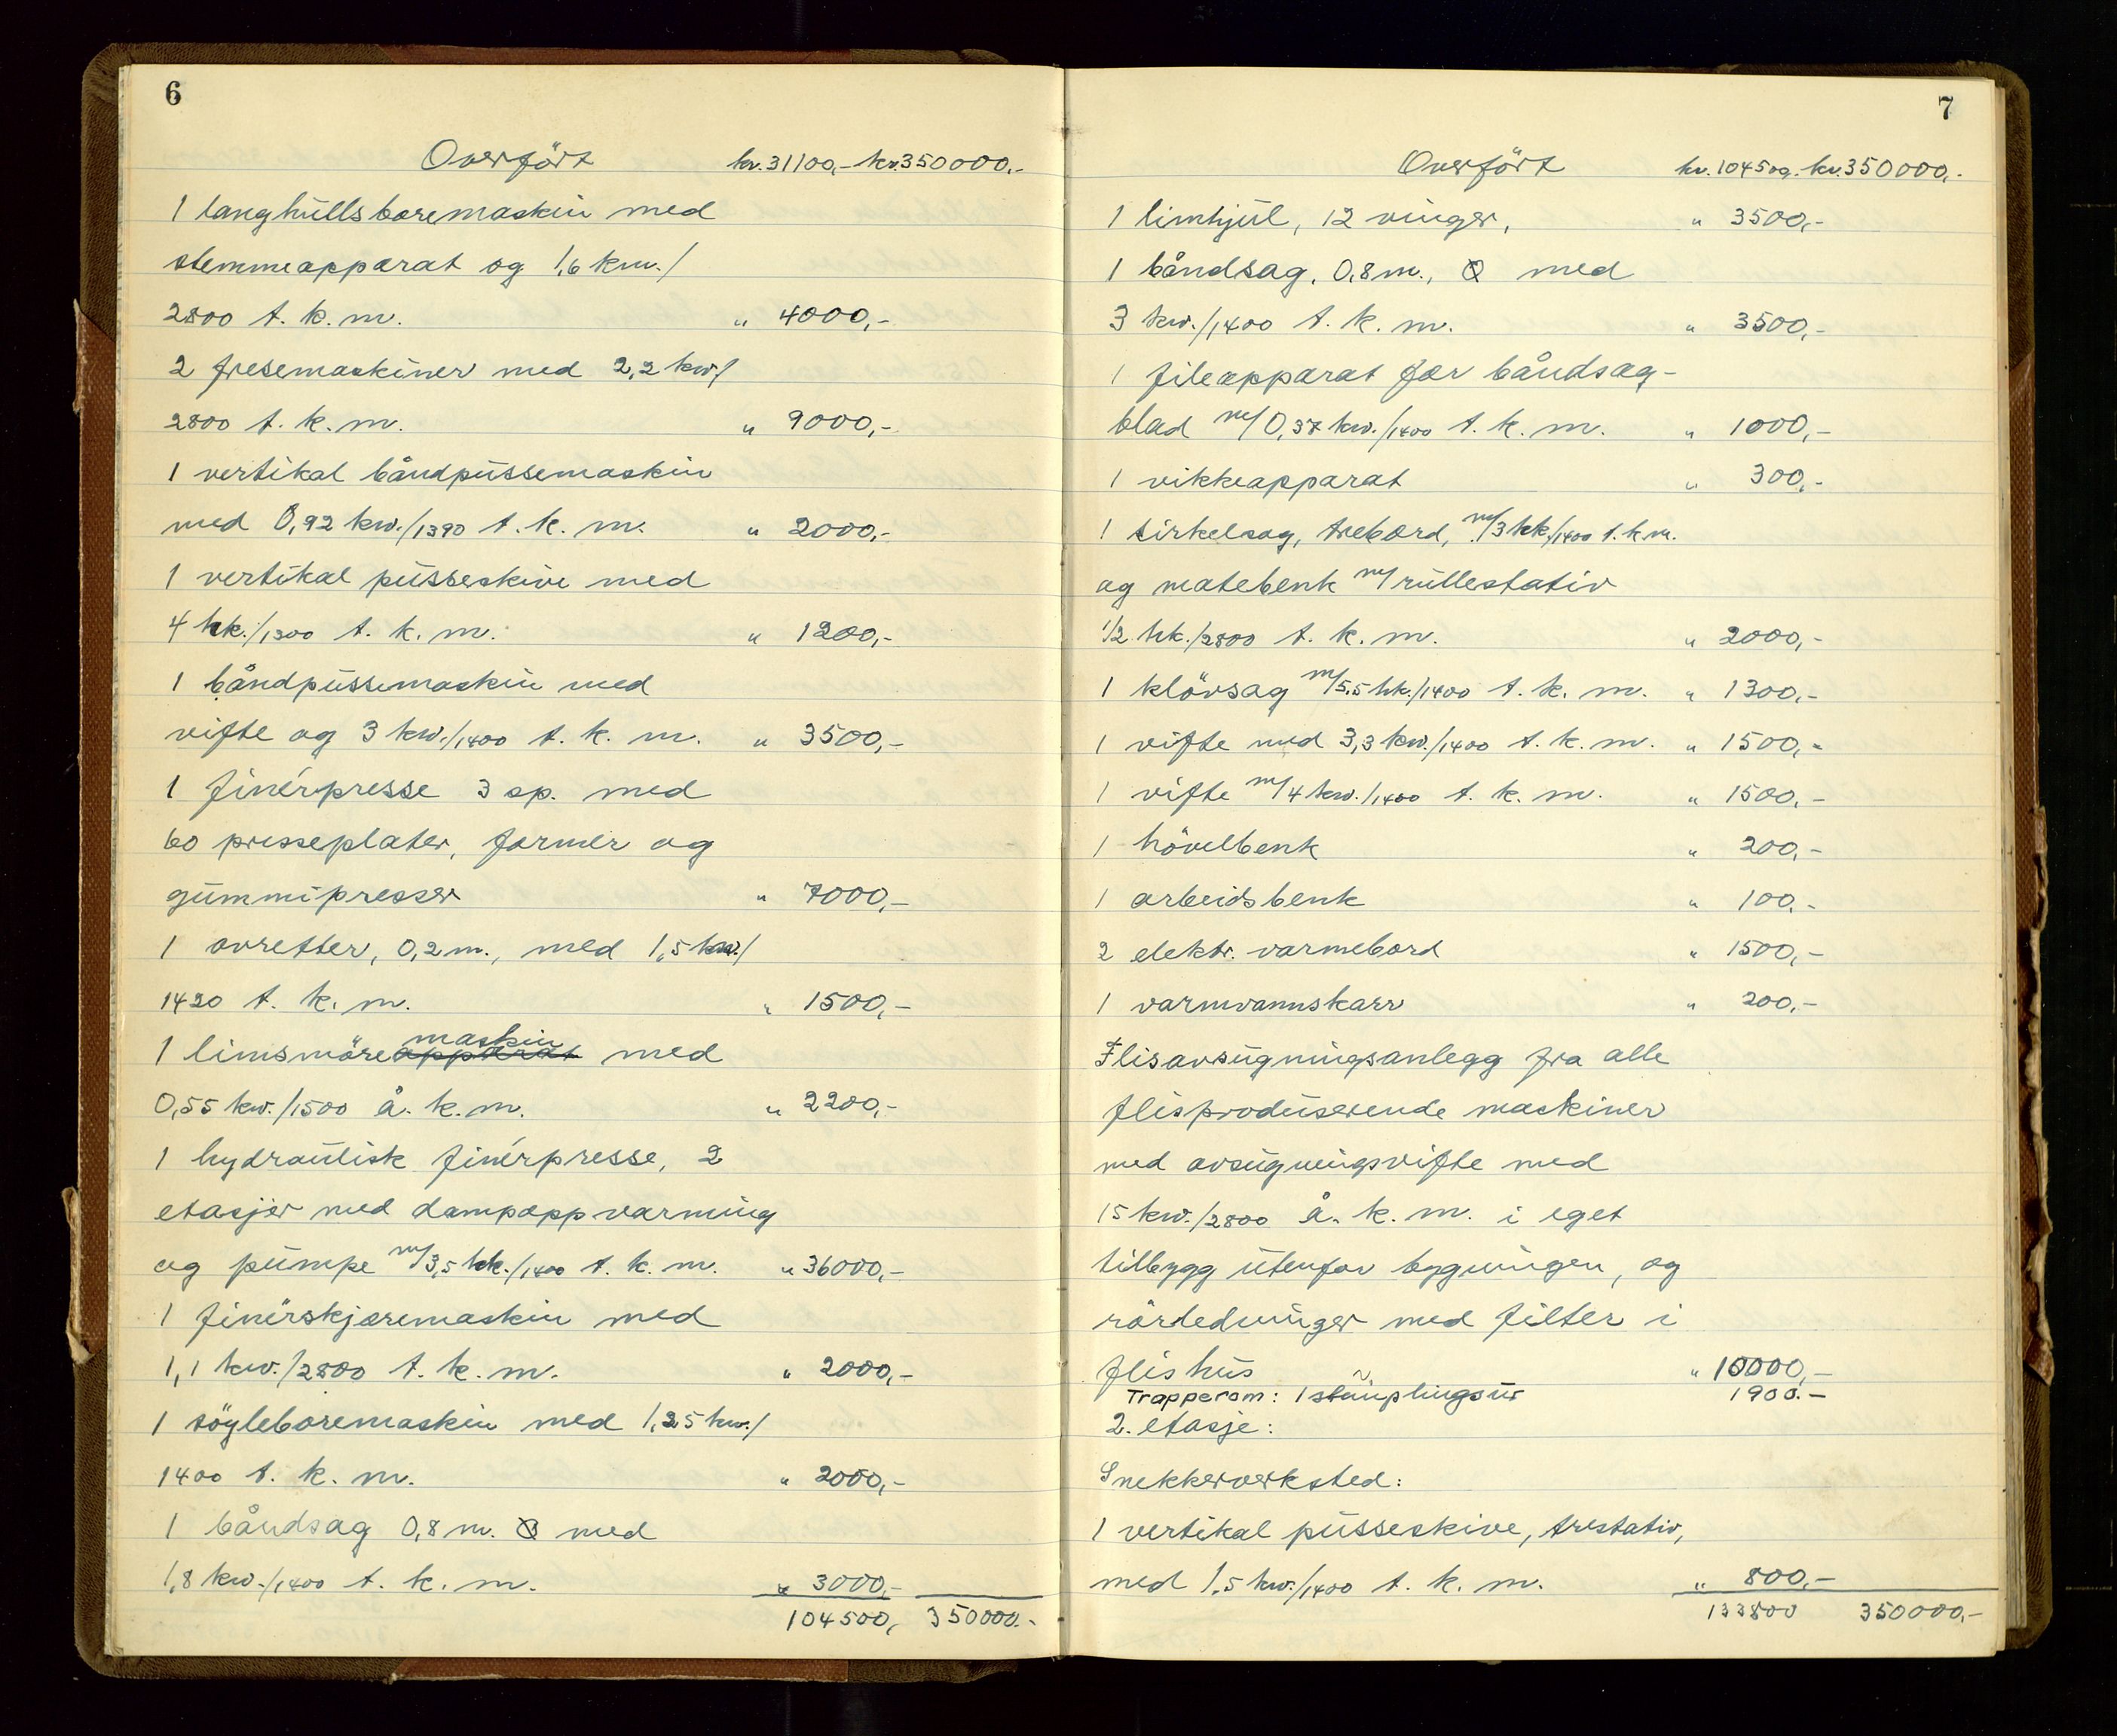 6
Overført kr. 31100,- kr. 350000.-
1 langhullsboremaskin med
stemmeapparat og 1,6 kw./
2800 t. k. m. " 4000,-
2 fresemaskiner med 2,2 kw/
2800 t. k. m. " 9000,-
1 vertikal båndpussemaskin
med 0,92 kw./1390 t. k. m. " 2000,-
1 vertikal pusseskive med
4 hk./1300 t. k. m. " 1200,-
1 båndpussemaskin med
vifte og 3 kw./1400 t. k. m. " 3500,-
1 finérpresse 3 sp. med
60 presseplater, former og
gummipresser " 7000,-
1 avretter, 0,2 m., med 1,5 kw./
1420 t. k. m. " 1500,-
1 limsmøreapparat maskin med
0,55 kw./1500 å. k. m. " 2200,-
1 hydraulisk finérpresse, 2
etasjer med dampoppvarming
og pumpe m/3,5 hk./1400 t. k. m. " 36000,-
1 finérskjæremaskin med
1,1 kw./2800 t. k. m. " 2000,-
1 søyleboremaskin med 1,25 kw./
1400 t. k. m. " 2000,-
1 båndsag 0,8 m. Ø med
1,8 kw./1400 t. k. m. " 3000,-
104500, 350000.-
7
Overført kr. 104500. kr. 350000,-
1 limhjul, 12 vinger, " 3500,-
1 båndsag, 0,8 m., Ø med
3 kw./1400 t. k. m. " 3500,-
1 fileapparat for båndsag-
blad m/0,37 kw./1400 t. k. m. " 1000,-
1 vikkeapparat " 300,-
1 sirkelsag, trebord, m/3 hk./1400 t. k. m.
og matebenk m/rullestativ
1/2 hk./2800 t. k. m. " 2000,-
1 kløvsag m/5,5 hk./1400 t. k. m. " 1300,-
1 vifte med 3,3 kw./1400 t. k. m. " 1500,-
1 vifte m/4 kw./1400 t. k. m. " 1500,-
1 høvelbenk " 200,-
1 arbeidsbenk " 100,-
2 elektr. varmebord " 1500,-
1 varmvannskarr " 200,-
Flisavsugningsanlegg fra alle
flisproduserende maskiner
med avsugningsvifte med
15 kw./2800 å. k. m. i eget
tilbygg utenfor bygningen, og
rørledninger med filter i
flishus " 10000,-
Trapperom: 1 stemplingsur 1900.-
2. etasje:
Snekkerverksted:
1 vertikal pusseskive, trestativ,
med 1,5 kw./1400 t. k. m. " 800,-
133800 350000,-